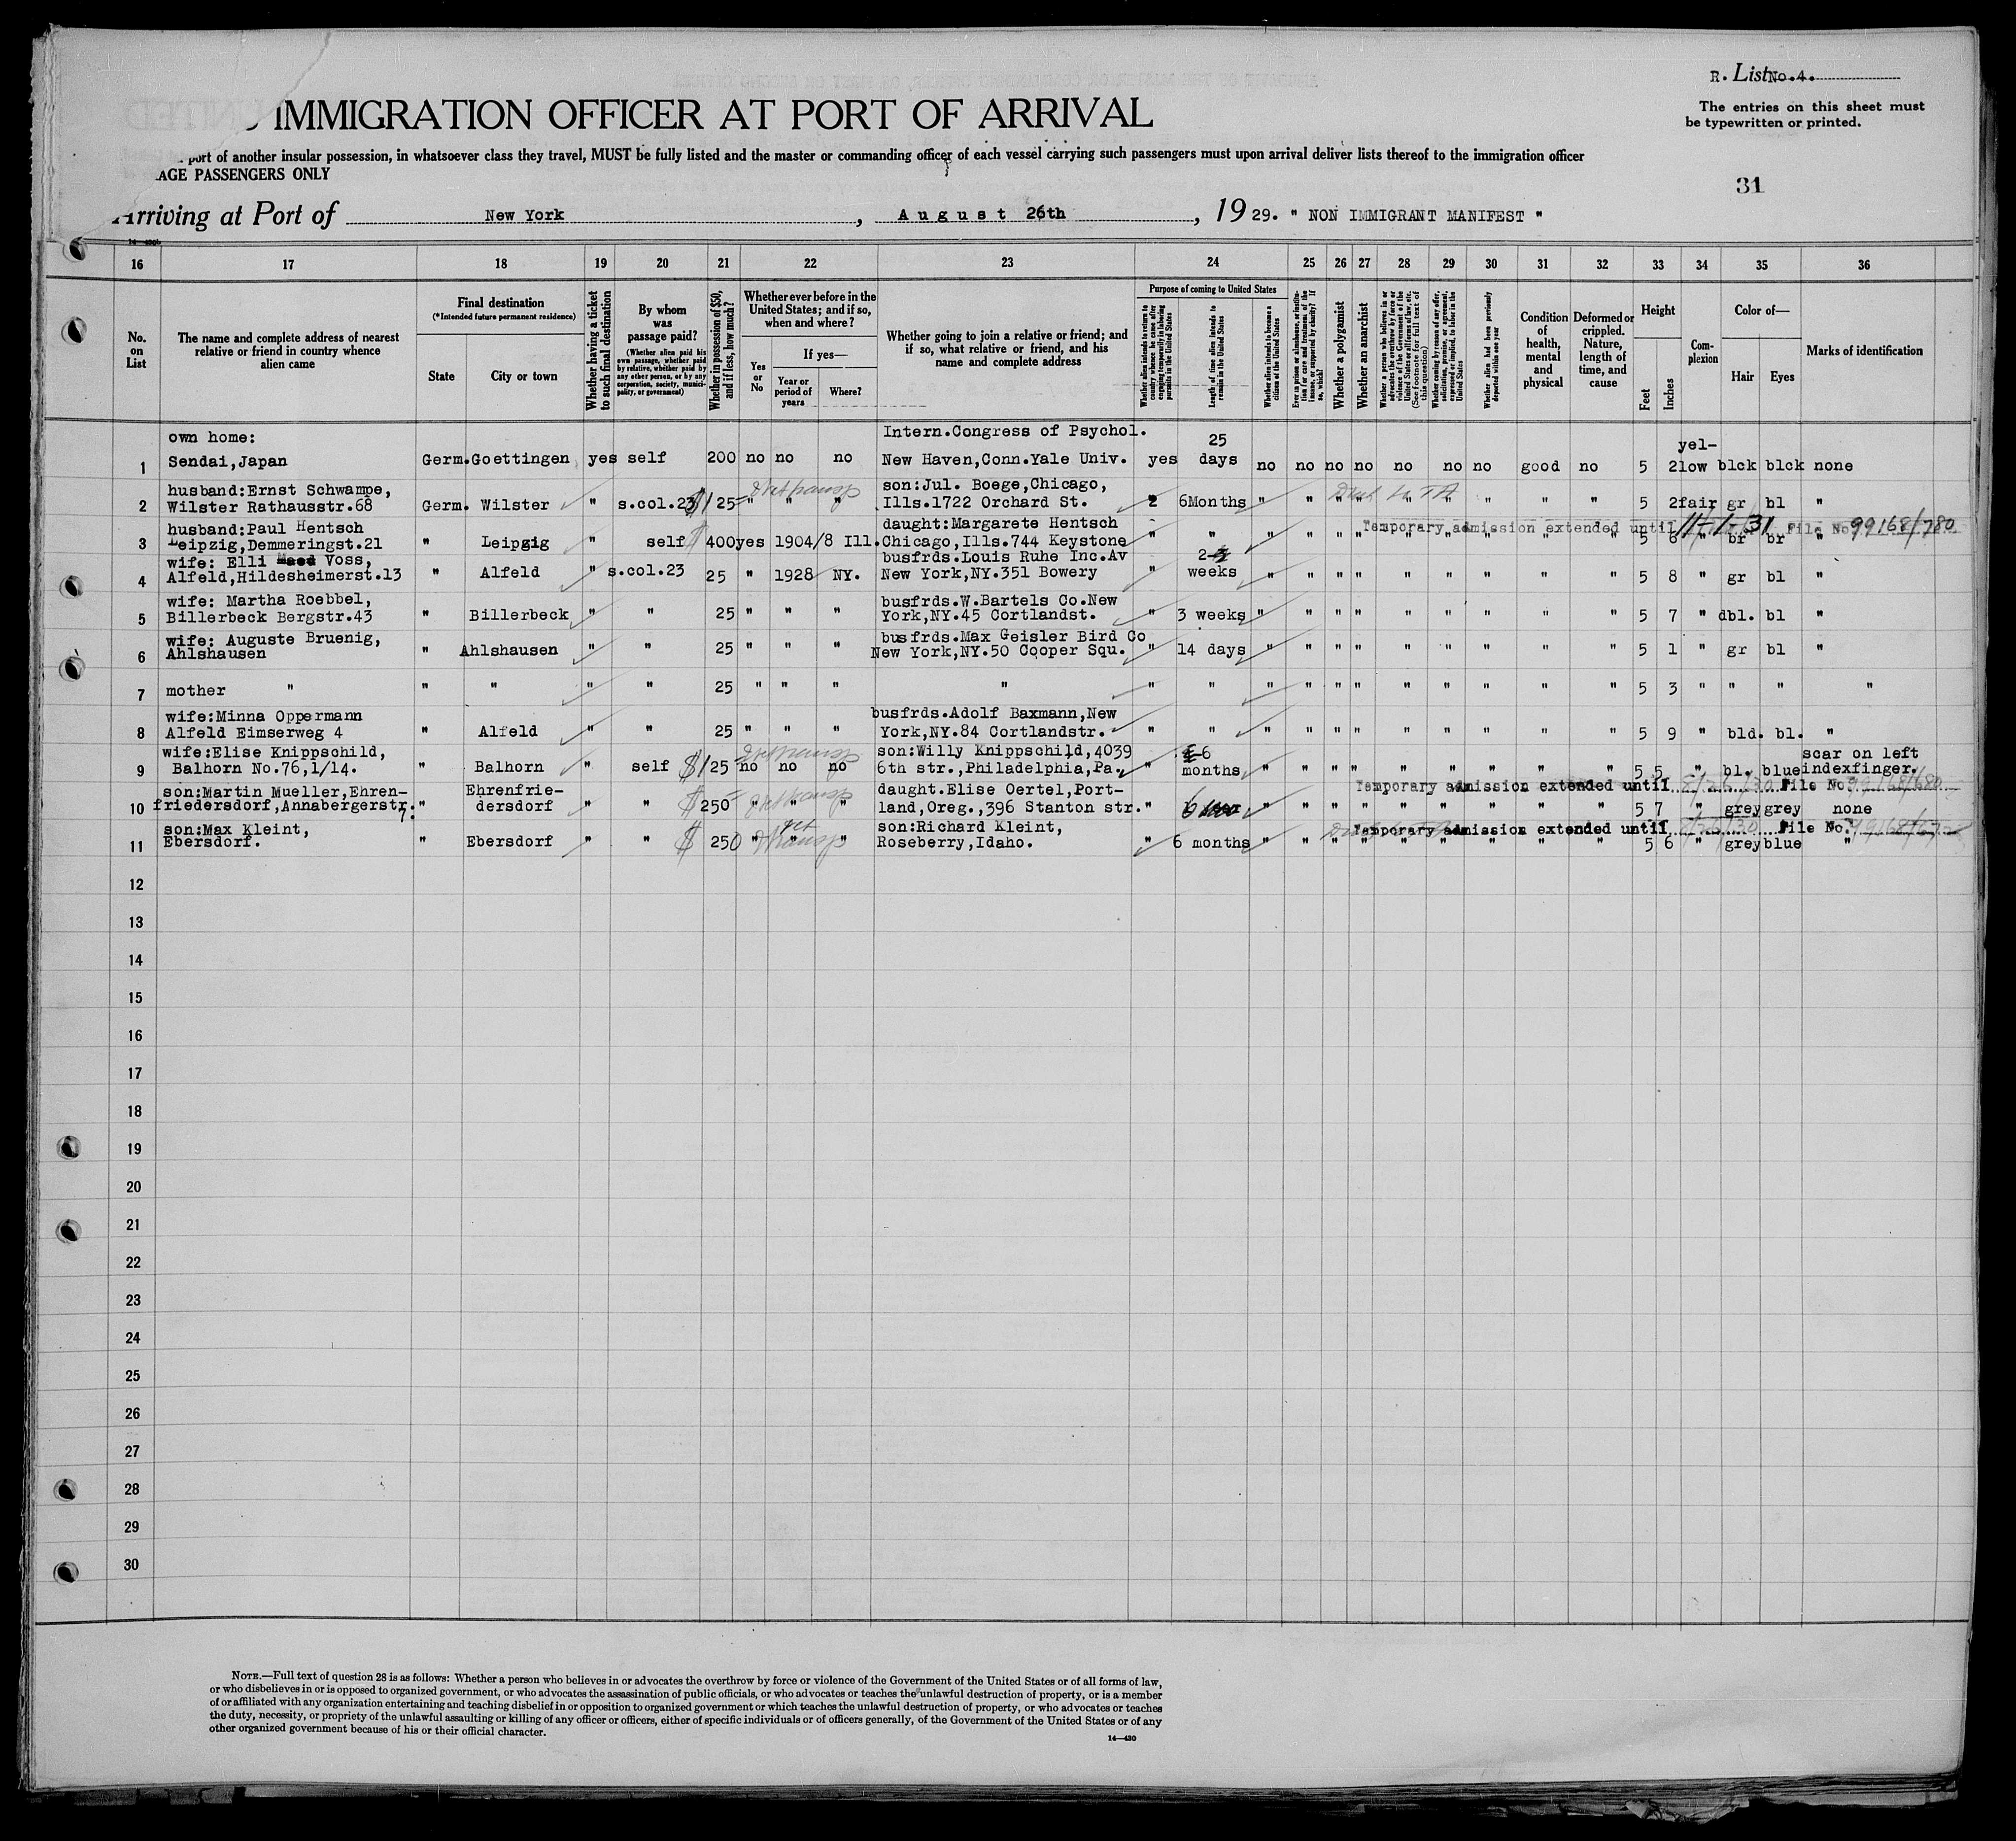 R. List No.4.
IMMIGRATION OFFICER AT PORT OF ARRIVAL
The entries on this sheet must
be typewritten or printed.
port of another insular possession, in whatsoever class they travel, MUST be fully listed and the master or commanding officer of each vessel carrying such passengers must upon arrival deliver lists thereof to the immigration officer
AGE PASSENGERS ONLY
31
Arriving at Port of New York, August 26th, 1929. " NON IMMIGRANT MANIFEST "
16 17 18 19 20 21 22 23 24 25 26 27 28 29 30 31 32 33 34 35 36
No. on List
The name and complete address of nearest relative or friend in country whence alien came
Final destination
(*Intended future permanent residence)
State
City or town
Whether having a ticket to such final destination
By whom was passage paid?
(Whether alien paid his own passage, whether paid by relative, whether paid by any other person, or by any corporation, society, municipality, or government)
Whether in possession of $50, and if less, how much?
Whether ever before in the United States; and if so, when and where?
Yes or No
If yes—
Year or period of years
Where?
Whether going to join a relative or friend; and if so, what relative or friend, and his name and complete address
Purpose of coming to United States
Whether alien intends to return to country whence he came after engaging temporarily in laboring pursuits in the United States
Length of time alien intends to remain in the United States
Whether alien intends to become a citizen of the United States
Ever in prison or almshouse, or institution for care and treatment of the insane, or supported by charity? If so, which?
Whether a polygamist
Whether an anarchist
Whether a person who believes in or advocates the overthrow by force or violence of the Government of the United States or all forms of law, etc. (See footnote for full text of this question)
Whether coming by reason of any offer, solicitation, promise, or agreement, expressed or implied, to labor in the United States
Whether alien had been previously deported within one year
Condition of health, mental and physical
Deformed or crippled. Nature, length of time, and cause
Height
Feet
Inches
Complexion
Color of—
Hair
Eyes
Marks of identification
own home: Intern.Congress of Psychol. 25 yel-
1 Sendai,Japan Germ. Goettingen yes self 200 no no no New Haven,Conn.Yale Univ. yes days no no no no no no no good no 5 2 low blck blck none
husband:Ernst Schwampe, son:Jul. Boege,Chicago,
2 Wilster Rathausstr.68 Germ. Wilster " s.col.23 $125 " " " Ills.1722 Orchard St. 6Months " " " " " " " " " 5 2 fair gr bl "
husband:Paul Hentsch daught:Margarete Hentsch Temporary admission extended until 11-1-31 File No. 99168/780
3 Leipzig,Demmeringst.21 " Leipgig " self $400 yes 1904/8 Ill. Chicago,Ills.744 Keystone " " " " " " " " " " " " 5 6 " br br "
wife: Elli Voss, busfrds.Louis Ruhe Inc.Av 2
4 Alfeld,Hildesheimerst.13 " Alfeld " s.col.23 25 " 1928 NY. New York,NY.351 Bowery " weeks " " " " " " " " " 5 8 " gr bl "
wife: Martha Roebbel, busfrds.W.Bartels Co.New
5 Billerbeck Bergstr.43 " Billerbeck " " 25 " " " York,NY.45 Cortlandst. " 3 weeks " " " " " " " " " 5 7 " dbl. bl "
wife: Auguste Bruenig, busfrds.Max Geisler Bird Co
6 Ahlshausen " Ahlshausen " " 25 " " " New York,NY.50 Cooper Squ. " 14 days " " " " " " " " " 5 1 " gr bl "
7 mother " " " " " 25 " " " " " " " " " " " " " " " 5 3 " " " "
wife:Minna Oppermann busfrds.Adolf Baxmann,New
8 Alfeld Eimserweg 4 " Alfeld " " 25 " " " York,NY.84 Cortlandstr. " " " " " " " " " " " 5 9 " bld. bl. "
wife:Elise Knippschild, son:Willy Knippschild,4039 6 scar on left
9 Balhorn No.76,1/14. " Balhorn " self $125 no no no 6th str.,Philadelphia,Pa. " months " " " " " " " " " 5 5 " bl. blue indexfinger.
son:Martin Mueller,Ehren- Ehrenfrie- daught.Elise Oertel,Port- Temporary admission extended until File No.
10 friedersdorf,Annabergerstr. 7. " dersdorf " " $250 " " " land,Oreg.,396 Stanton str. " 6 " " " " " " " " " 5 7 " grey grey none
son:Max Kleint, son:Richard Kleint, Temporary admission extended until File No.
11 Ebersdorf. " Ebersdorf " " $ 250 " " " Roseberry,Idaho. " 6 months " " " " " " " " " 5 6 " grey blue "
12
13
14
15
16
17
18
19
20
21
22
23
24
25
26
27
28
29
30
NOTE.—Full text of question 28 is as follows: Whether a person who believes in or advocates the overthrow by force or violence of the Government of the United States or of all forms of law,
or who disbelieves in or is opposed to organized government, or who advocates the assassination of public officials, or who advocates or teaches the unlawful destruction of property, or is a member
of or affiliated with any organization entertaining and teaching disbelief in or opposition to organized government or which teaches the unlawful destruction of property, or who advocates or teaches
the duty, necessity, or propriety of the unlawful assaulting or killing of any officer or officers, either of specific individuals or of officers generally, of the Government of the United States or of any
other organized government because of his or their official character.
14—430